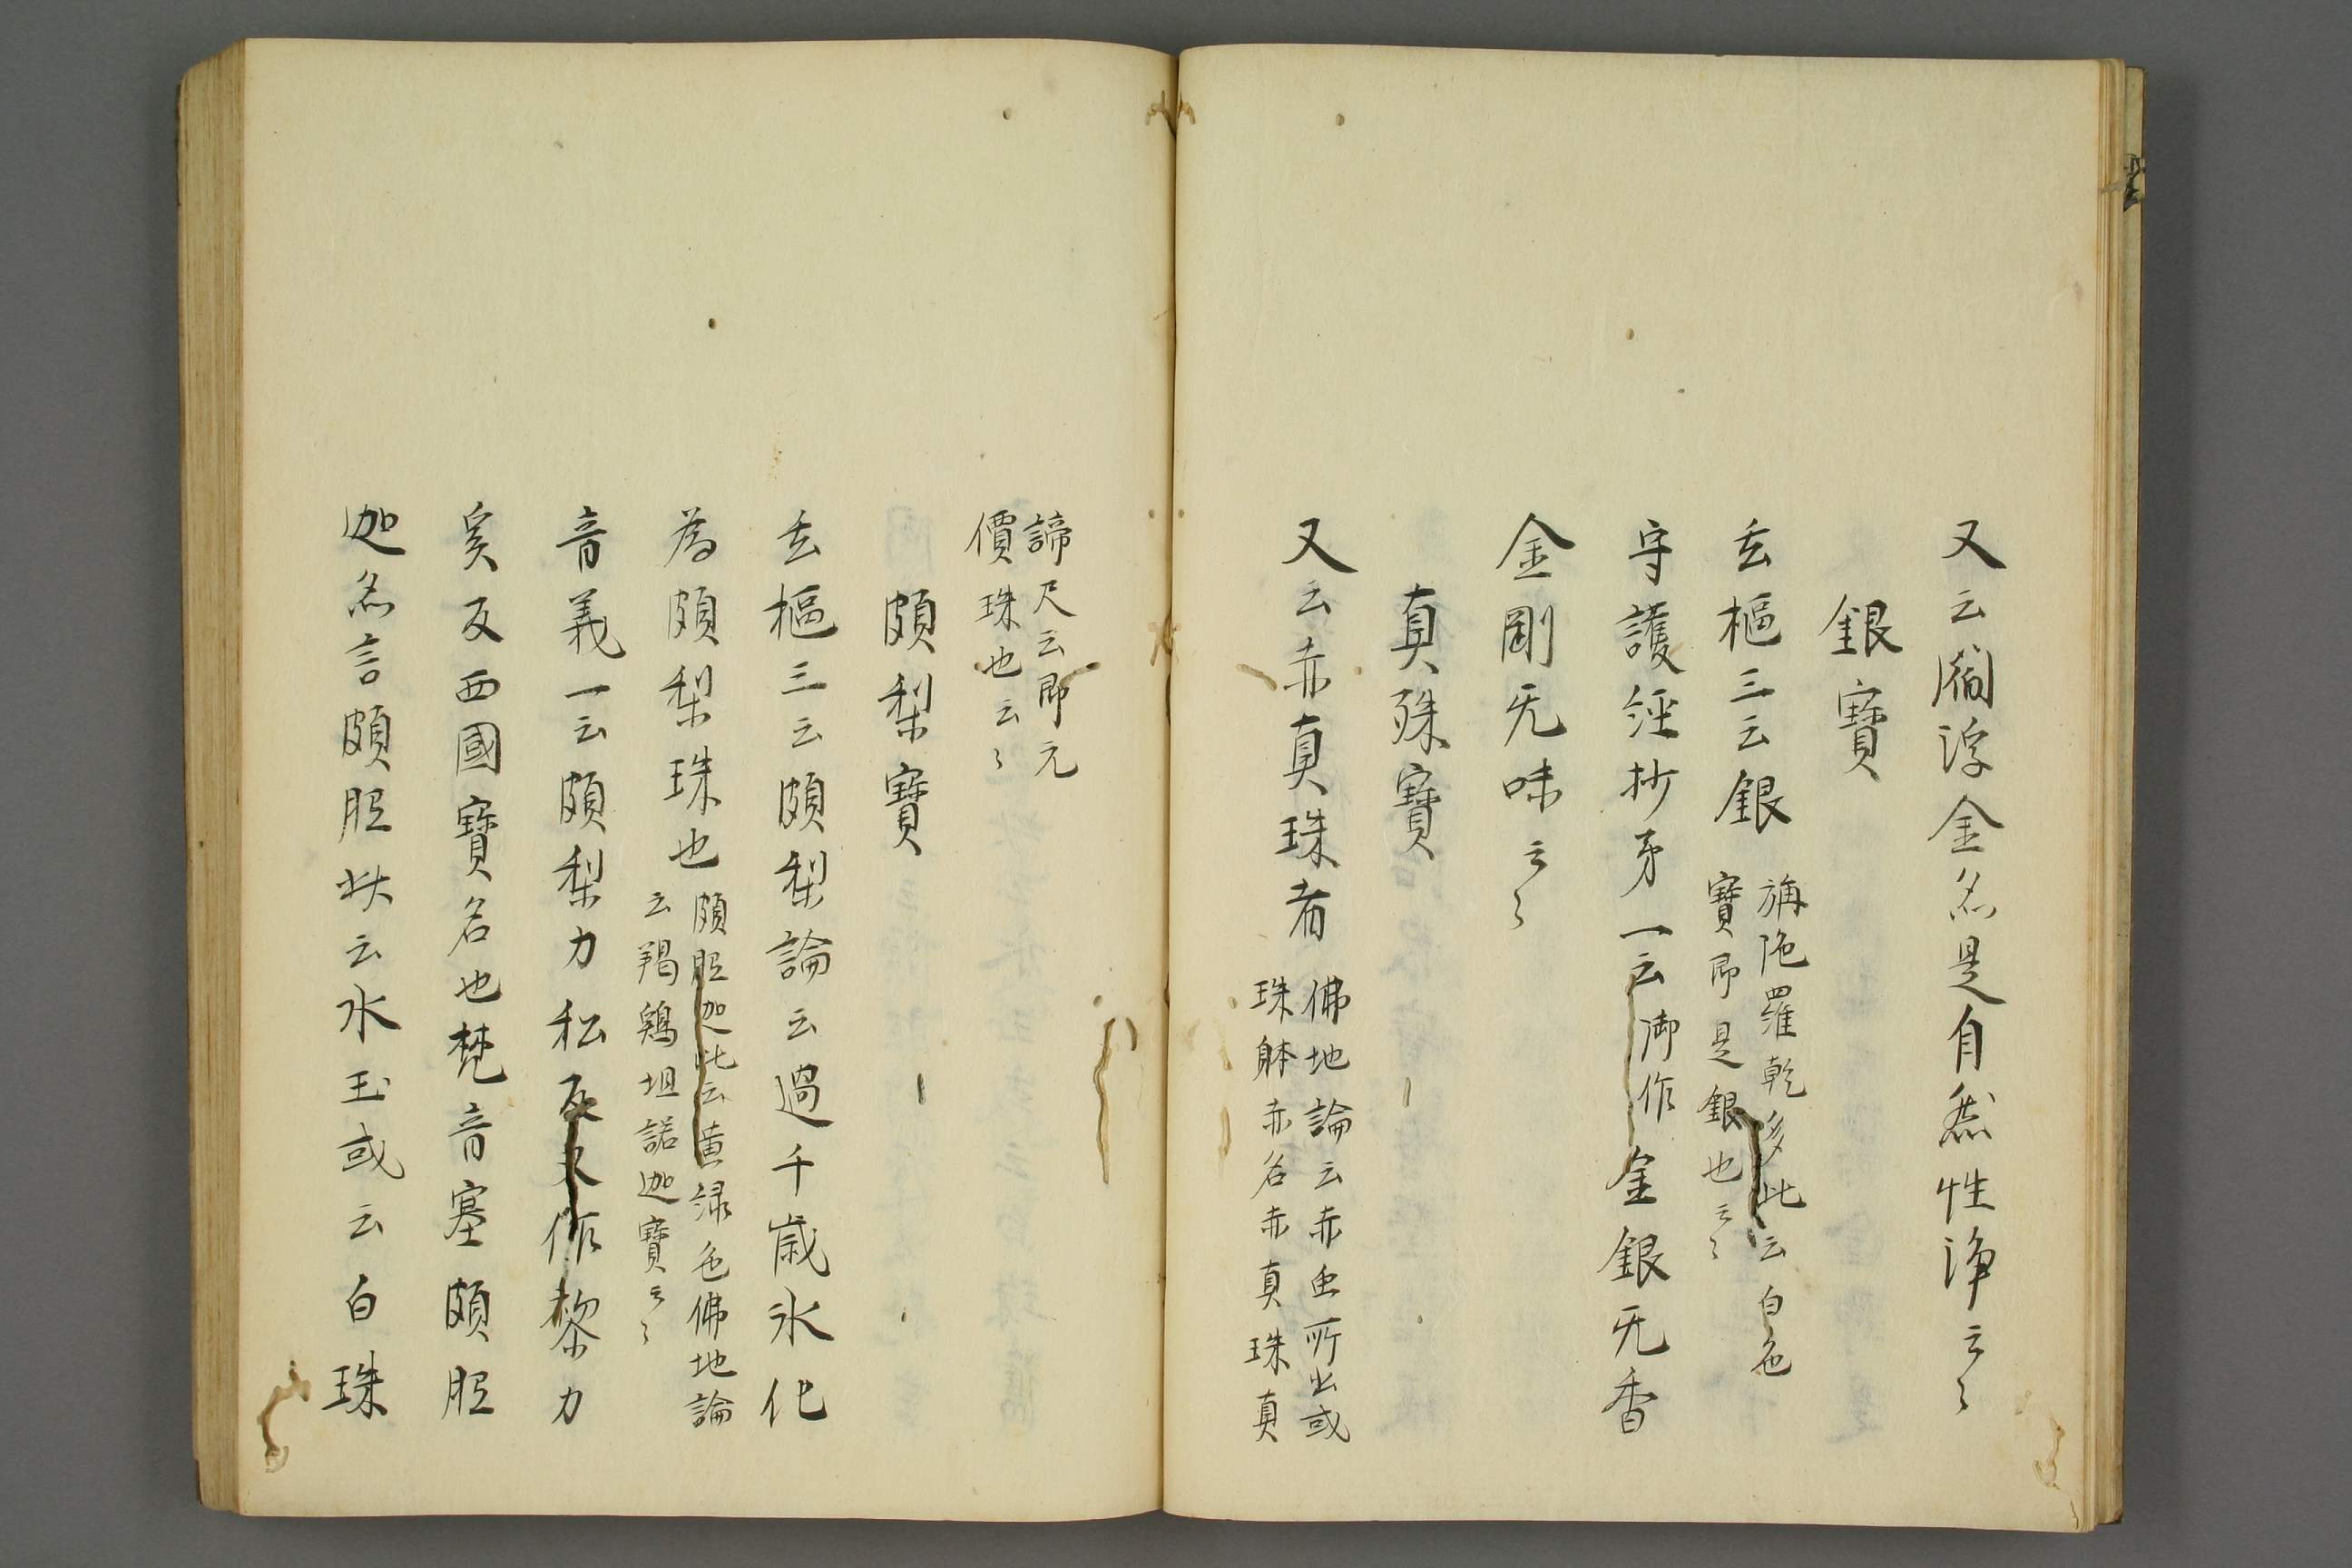 又云閻浮金名是自然性浄云〻
銀寶
玄樞三云銀
旃陁羅乾多此云白色
寶即是銀也云〻
守護経抄苐一云御作金銀无香
金剛无味云〻
真殊寶
又云赤真珠者
佛地論云赤虫所出或
珠躰赤名赤真珠真
諦尺云即无
價珠也云〻
頗梨寶
玄樞三云頗梨論云過千歳氷化
為頗梨珠也
頗胝迦此云黄緑色佛地論
云羯鶏坦諾迦寶云〻
音義一云頗梨力私反又作黎力
奚反西國寶名也梵音塞頗胝
迦名言頗胝状云水玉或云白珠